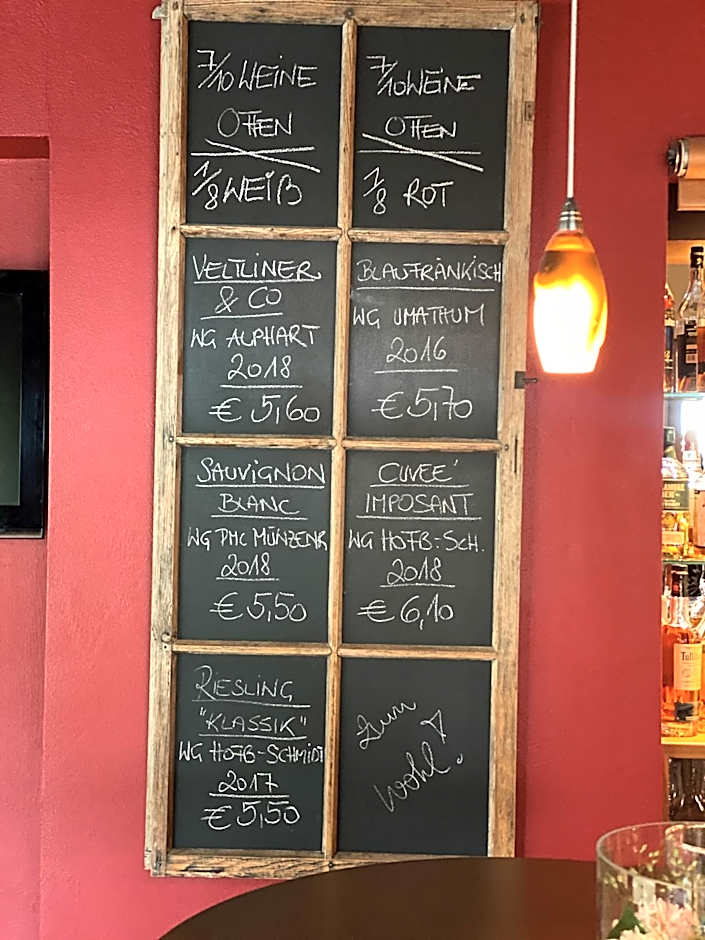 7/10 WEINE
OFFEN
1/8 WEIß
7/10 WEINE
OFFEN
1/8 ROT
VELTLINER
& CO
WG ALPHART
2018
€ 5,60
BLAUFRÄNKISCH
WG UMATHUM
2016
€ 5,70
SAUVIGNON
BLANC
WG PMC MÜNZENR
2018
€ 5,50
CUVEÉ
IMPOSANT
WG HOFB-SCH.
2018
€ 6,10
RIESLING
"KLASSIK"
WG HOFB-SCHMIDT
2017
€ 5,50
Zum
Wohl!